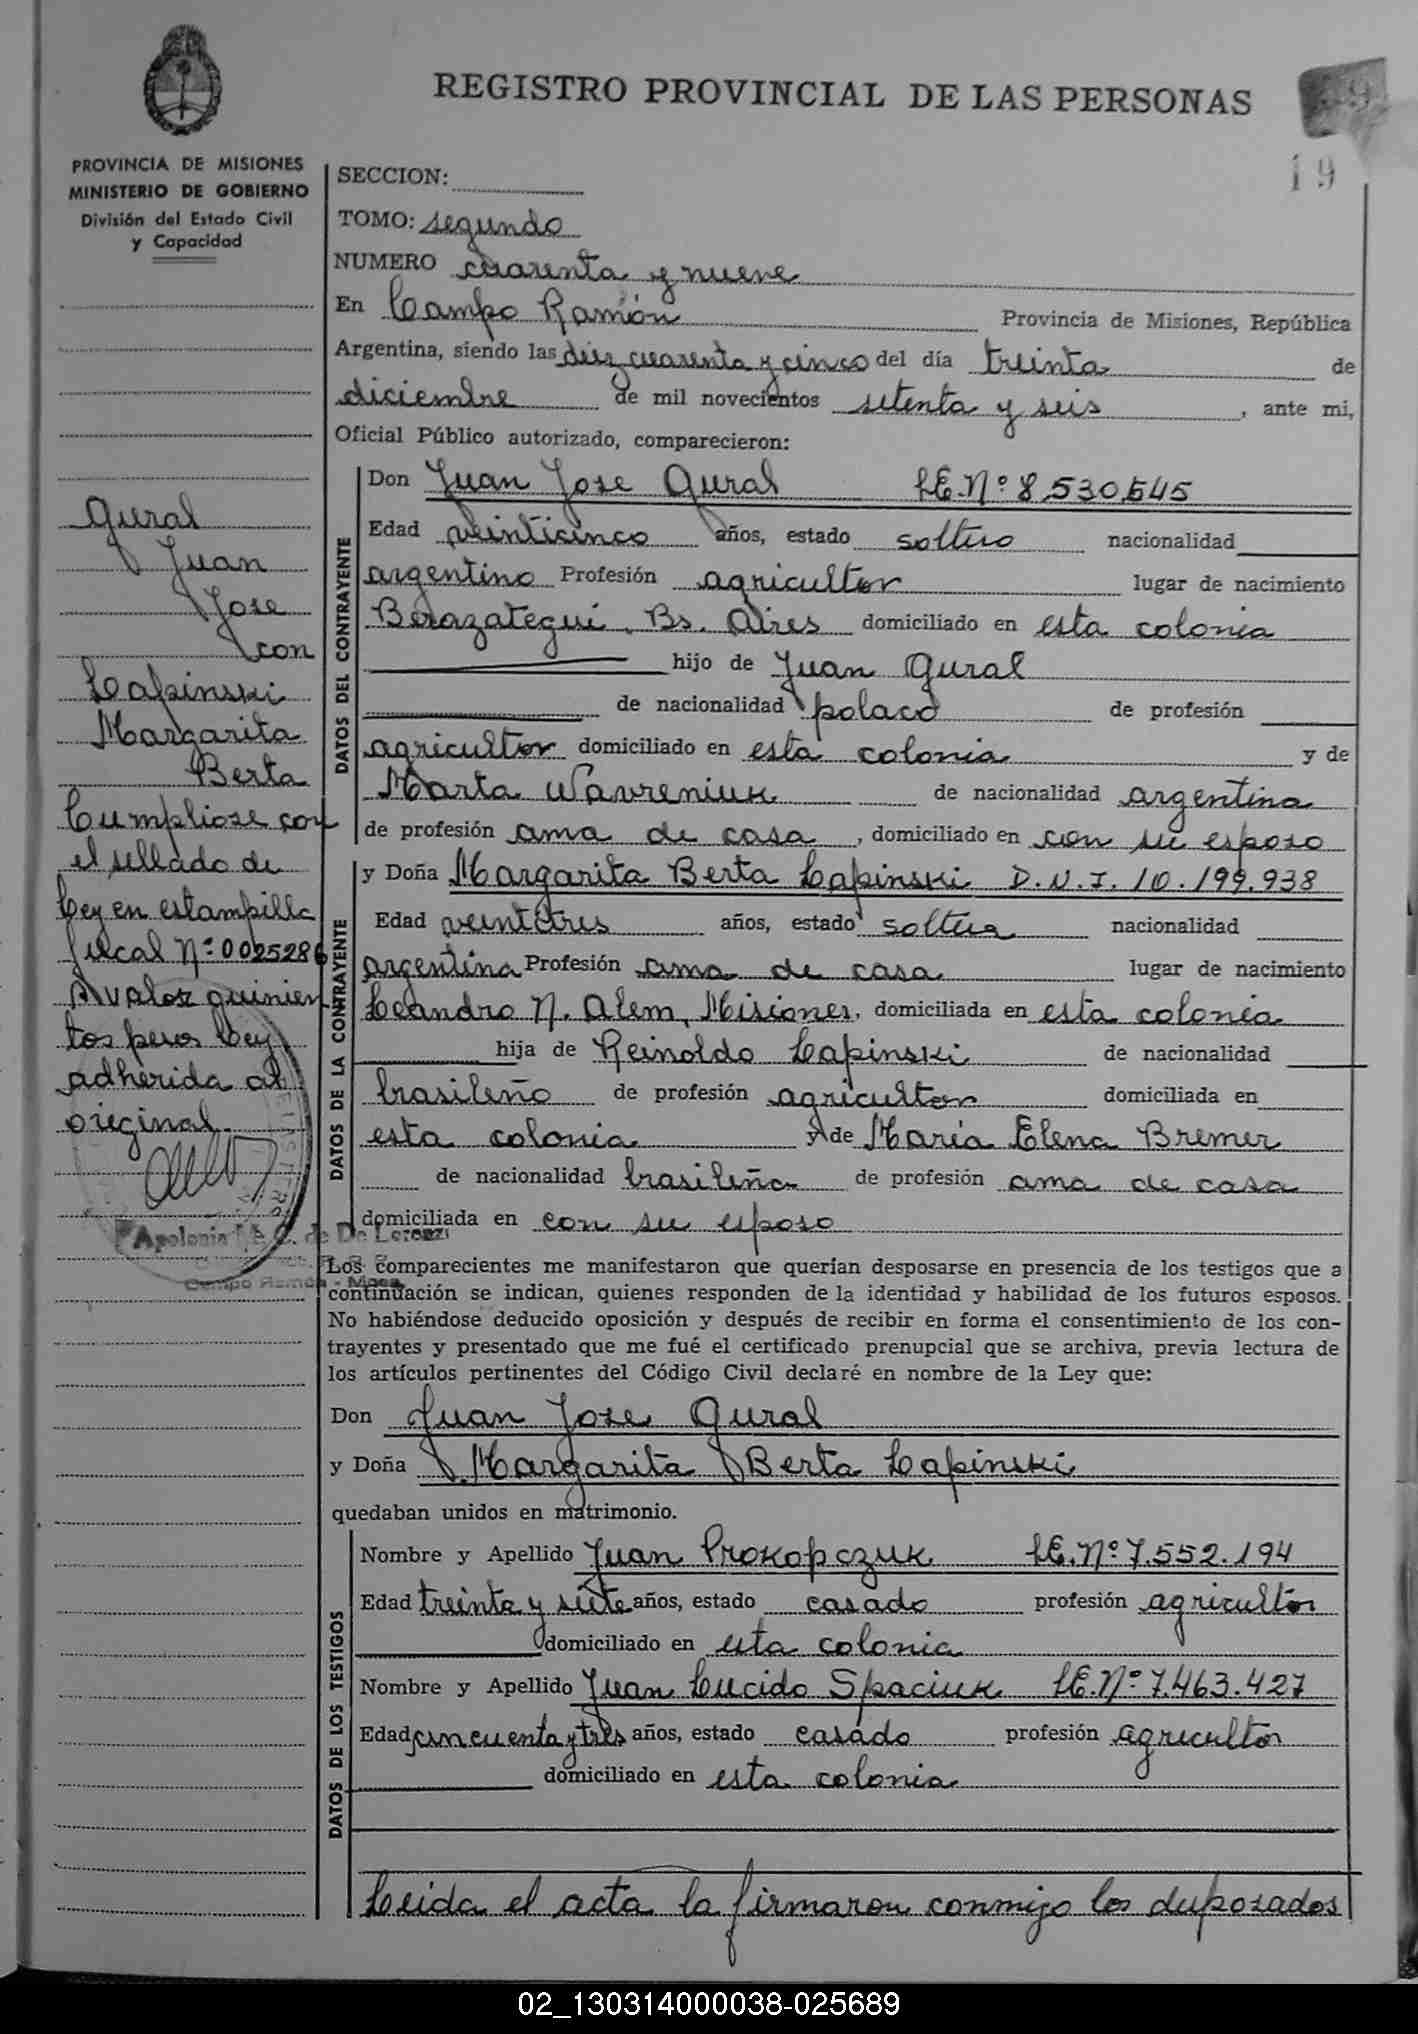 REGISTRO PROVINCIAL DE LAS PERSONAS
19
PROVINCIA DE MISIONES
MINISTERIO DE GOBIERNO
División del Estado Civil
y Capacidad
Gural
Juan
Jose
con
Lapinski
Margarita
Berta
Cumpliose con
el sellado de
Ley en estampilla
fiscal Nº 0025286
A valor quinien
tos pesos Ley
adherida al
original.
Apolonia C. de De Lorenzi
Campo Ramón - Mnes.
SECCION:
TOMO: segundo
NUMERO cuarenta y nueve
En Campo Ramón Provincia de Misiones, República
Argentina, siendo las diez cuarenta y cinco del día treinta de
diciembre de mil novecientos setenta y seis, ante mi,
Oficial Público autorizado, comparecieron:
DATOS DEL CONTRAYENTE
Don Juan Jose Gural L.E. Nº 8.530.545
Edad veinticinco años, estado soltero nacionalidad
argentino Profesión agricultor lugar de nacimiento
Berazategui, Bs. Aires domiciliado en esta colonia
hijo de Juan Gural
de nacionalidad polaco de profesión
agricultor domiciliado en esta colonia y de
Marta Wavreniuk de nacionalidad argentina
de profesión ama de casa, domiciliado en con su esposo
DATOS DE LA CONTRAYENTE
y Doña Margarita Berta Lapinski D.N.I. 10.199.938
Edad veintitres años, estado soltera nacionalidad
argentina Profesión ama de casa lugar de nacimiento
Leandro N. Alem, Misiones, domiciliada en esta colonia
hija de Reinoldo Lapinski de nacionalidad
brasileño de profesión agricultor domiciliada en
esta colonia y de Maria Elena Bremer
de nacionalidad brasileña de profesión ama de casa
domiciliada en con su esposo
Los comparecientes me manifestaron que querían desposarse en presencia de los testigos que a
continuación se indican, quienes responden de la identidad y habilidad de los futuros esposos.
No habiéndose deducido oposición y después de recibir en forma el consentimiento de los con-
trayentes y presentado que me fué el certificado prenupcial que se archiva, previa lectura de
los artículos pertinentes del Código Civil declaré en nombre de la Ley que:
Don Juan Jose Gural
y Doña Margarita Berta Lapinski
quedaban unidos en matrimonio.
DATOS DE LOS TESTIGOS
Nombre y Apellido Juan Prokopczuk L.E. Nº 7.552.194
Edad treinta y siete años, estado casado profesión agricultor
domiciliado en esta colonia
Nombre y Apellido Juan Lucido Spaciuk L.E. Nº 7.463.427
Edad cincuenta y tres años, estado casado profesión agricultor
domiciliado en esta colonia
Leida el acta la firmaron conmigo los desposados
02_130314000038-025689